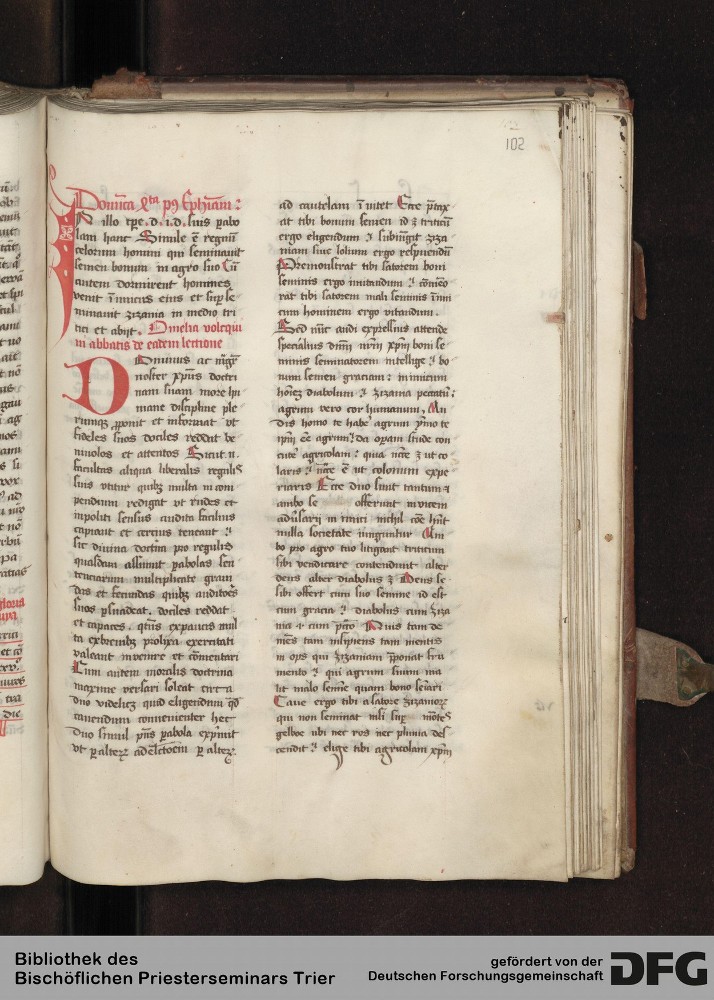 102
Domīca q̄ta p9 Ephiam:
In illo tpe. d. i. d. suis pabo
lam hanc Simile ē regnū
celorum homini qui seminauit
semen bonum in agro suo Cū
autem dormirent homines
venit inimicus eius et sup se
minauit zizania in medio tri
tici et abijt. Omelia volcqui
ni abbatis de eadem lectione
Dominus ac mgr̄
noster xpus doctri
nam suam more hu
mane discipline ple
rumqz ꝓponit et informat vt
fideles suos dociles reddat be
niuolos et attentos Sicut n.
facultas aliqua liberalis regulis
suis vtitur quibz multa in com
pendium redigat vt rudes et
inpoliti sensus audita facilius
capiant et cercius teneant :
sic diuina doctrina pro regulis
quasdam assumit pabolas sen
tenciarum multiplicate graui
das et fecundas quibz auditores
suos psuadeat. dociles reddat
et capaces. qtus expansis mul
ta exbreuibz prolixa exercitati
valeant inuenire et cōmentari
Cum autem moralis doctrina
maxime versari soleat circa
duo videlicz quid eligendum qd
cauendum conuenienter hec
duo simul pns pabola exprimit
vt p alterz ad electoem p alterz
ad cautelam inuitet Ecce ptax
at tibi bonum semen id ē triticū
ergo eligendum : subiungit ziza
niam siue lolium ergo respuendū
Demonstrat tibi satorem boni
seminis ergo imitandum : cōmēo
rat tibi satorem mali seminis inimi
cum hominem ergo vitandum.
Sed nūc audi expressius attende
specialius dnm nrm xpm boni se
minis seminatorem intellige : bo
num semen graciam: inimicum
hoīez diabolum : zizania peccatū:
agrum vero cor humanum. Au
dis homo te habē agrum ymo te
ipm eē agrum: da opam stude con
cutē agricolam : quia ncē ē ut co
laris : ncē ē ut colonum expe
riaris Ecce duo sunt tantum :
ambo se offerunt inuicem
aduersarij inimici nichil cōe hūt
nulla societate iunguntur Am
bo pro agro tuo litigant triticum
sibi vendicare contendunt alter
deus alter diabolus ē Deus se
sibi offert cum suo semine id est
cum gracia : diabolus cum ziza
nia : cum pccō Quis tam de
mens tam insipiens tam mentis
in ops qui zizaniam pponat fru
mento : qui agrum suum ma
lit malo semīe quam bono seīari
Caue ergo tibi a satore zizaniorz
qui non seminat nisi sup montes
gelboe ubi nec ros nec pluuia des
cendit : elige tibi agricolam xpm
Bibliothek des
Bischöflichen Priesterseminars Trier
gefördert von der
Deutschen Forschungsgemeinschaft
DFG